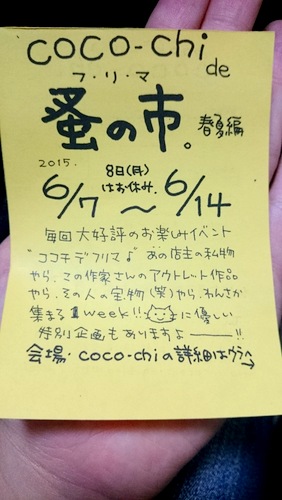 coco-chi
de
フ・リ・マ
蚤の市。春夏編
2015. 8日(月)はお休み.
6/7 〜 6/14
毎回大好評のお楽しみイベント
"ココチデフリマ♪" あの店主の私物
やら、この作家さんのアウトレット作品
やら、その人の宝物(笑)やら、わんさか
集まる1week!! に優しい
特別企画もありますよ――!!
会場・coco-chiの詳細はウラへ→